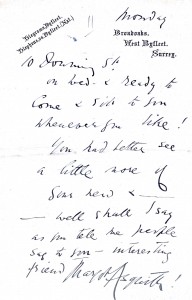 Telegrams, Byfleet.
Telephone, Byfleet (Nat.)
Monday
Breakoaks,
West Byfleet,
Surrey.
To Downing St.
on Wed. & ready to
come & sit to you
whenever you like!
You had better see
a little more of
your new &
— well shall I say
as you tell me people
say to you — interesting
friend Margot Asquith!